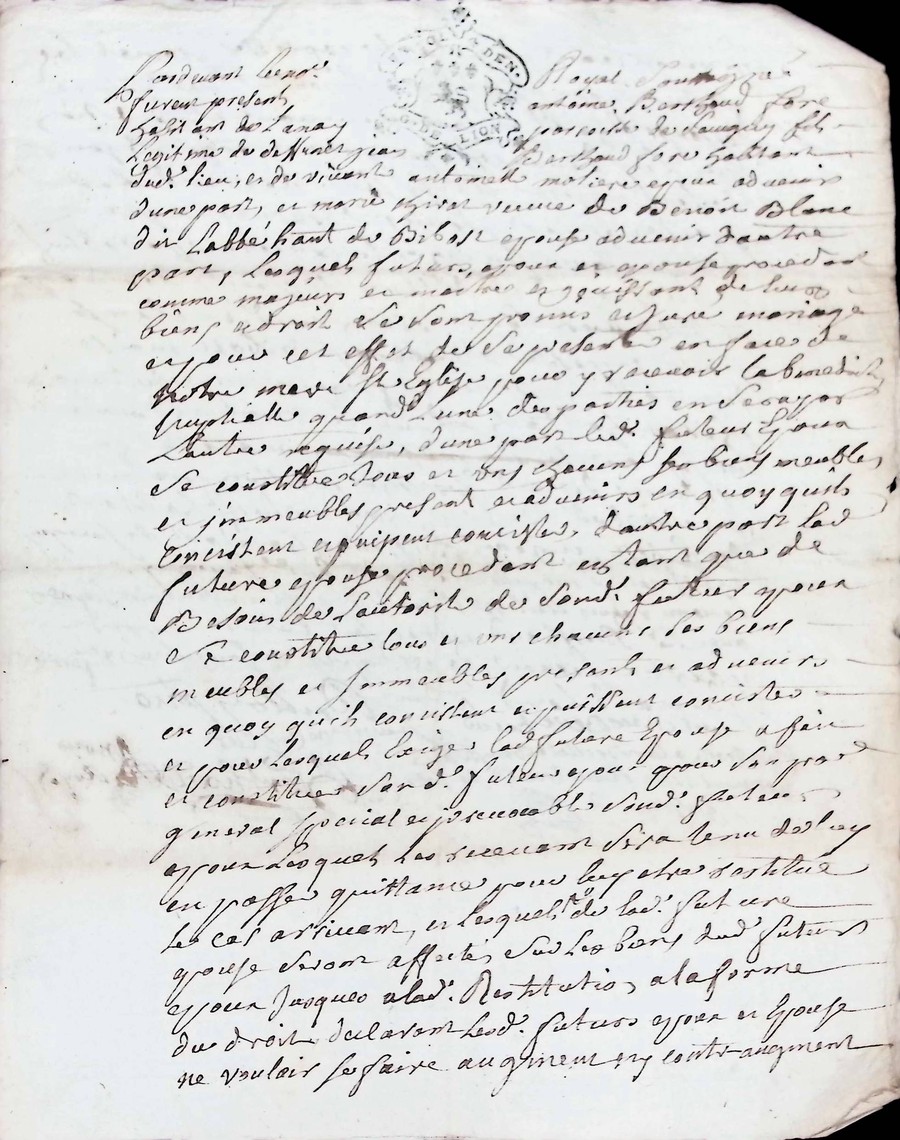 Pardevant le no.re Royal Soussigné
furent present antoine Berthaud fore
habitant de Lanay parroisse de Savigny fils
Legitime de deffunct jean Berthaud fore habitant
dud. lieu, et de vivante antoinette moliere epoux advenir
dune part, et marie verue de Benoit Blanc
dit Labbé hant de Bibost epouse advenir dautre
part, Lesquels futurs, epoux et epouse procedant
comme majeurs et maitre et jouissant de leurs
biens et droit se sont promis et juré mariage
et pour cet effet de se presenter en face de
notre mere Ste Eglise pour y recevoir la benediction
nuptialle quand Lune des parties en sera par
Lautre requise, dune part led. futeur Epoux
se constitue tous et uns chacuns ses biens meubles,
et jmmeubles present et advenirs en quoy quils
concistent et puipent concister, dautre part lad
future epouse procedant entant que de
Besoin de Lautorité de sond. futeur epoux
se constitue tous et uns chacuns ses biens
meubles et jmmeubles presents et advenirs
en quoy quils concistent et puissent concister
et pour Lesquels Exiger lad. future Epouse a fait
et constitue sond. futeur epoux pour son proc
general special et jrrevocable sond. futeur
epoux Lesquels Les recevant sera tenu de luy
en passer quittance pour luy etre restitué
Le cas arrivant, et Lesquels de lad. future
epouse seront affectés sur Les biens dud. futeur
epoux Jusques a lad. Restitution, a la forme
du droit declarant Lesd. futurs epoux et Epouse
ne vouloir se faire augment ny contr-augment
DEN.
G. DE LION